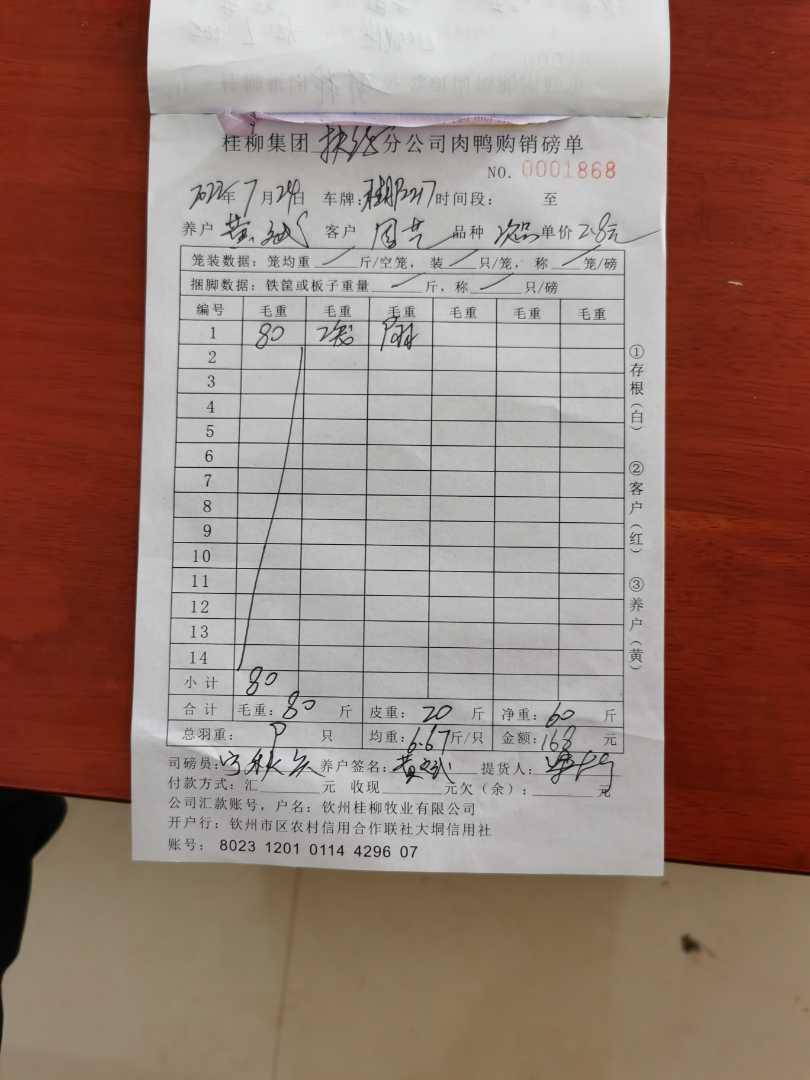 桂柳集团 分公司肉鸭购销磅单
NO. 0001868
2022年7月24日 车牌: 2217 时间段: 至
养户 黄 客户 周芸 品种 次品 单价 2.8元
笼装数据: 笼均重 / 斤/空笼, 装 / 只/笼, 称 / 笼/磅
捆脚数据: 铁筐或板子重量 / 斤, 称 / 只/磅
编号 毛重 毛重 毛重 毛重 毛重 毛重
1 80
2
3
4
5
6
7
8
9
10
11
12
13
14
小计 80
合计 毛重: 80 斤 皮重: 20 斤 净重: 60 斤
总羽重: 9 只 均重: 6.67斤/只 金额: 168 元
司磅员: 养户签名: 黄 提货人:
付款方式: 汇 元 收现 元欠(余): 元
公司汇款账号, 户名: 钦州桂柳牧业有限公司
开户行: 钦州市区农村信用合作联社大垌信用社
账号: 8023 1201 0114 4296 07
①存根(白) ②客户(红) ③养户(黄)